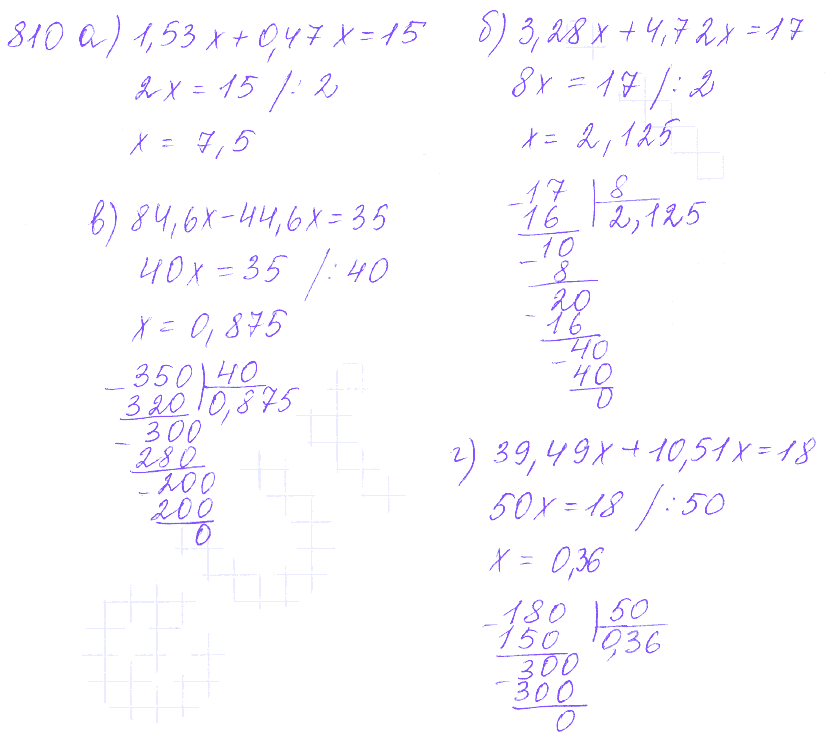 810 а) 1,53x+0,47x=15
2x=15 /:2
x=7,5
б) 3,28x+4,72x=17
8x=17 /:2
x=2,125
-17 | 8
16 | 2,125
-10
8
20
-16
-40
40
0
в) 84,6x-44,6x=35
40x=35 /:40
x=0,875
-350 | 40
320 | 0,875
-300
280
-200
200
0
г) 39,49x+10,51x=18
50x=18 /:50
x=0,36
-180 | 50
150 | 0,36
-300
300
0